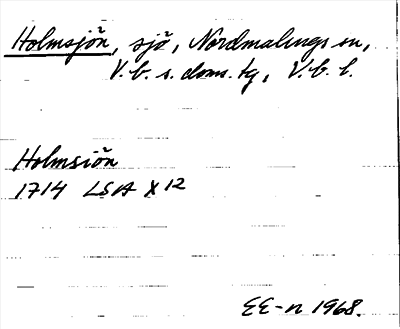 Holmsjön, sjö, Nordmalings sn,
V.b. s. doms. tg, V.b. l.
Holmsiön
1714 LSA X 12
EE-n 1968.